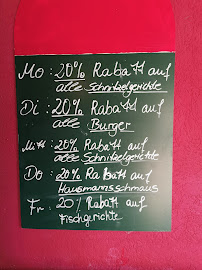 Mo: 20% Rabatt auf
alle Schnitzelgerichte
Di: 20% Rabatt auf
alle Burger
Mitt: 20% Rabatt auf
alle Schnitzelgerichte
Do: 20% Rabatt auf
Hausmannsschmaus
Fr: 20% Rabatt auf
Fischgerichte